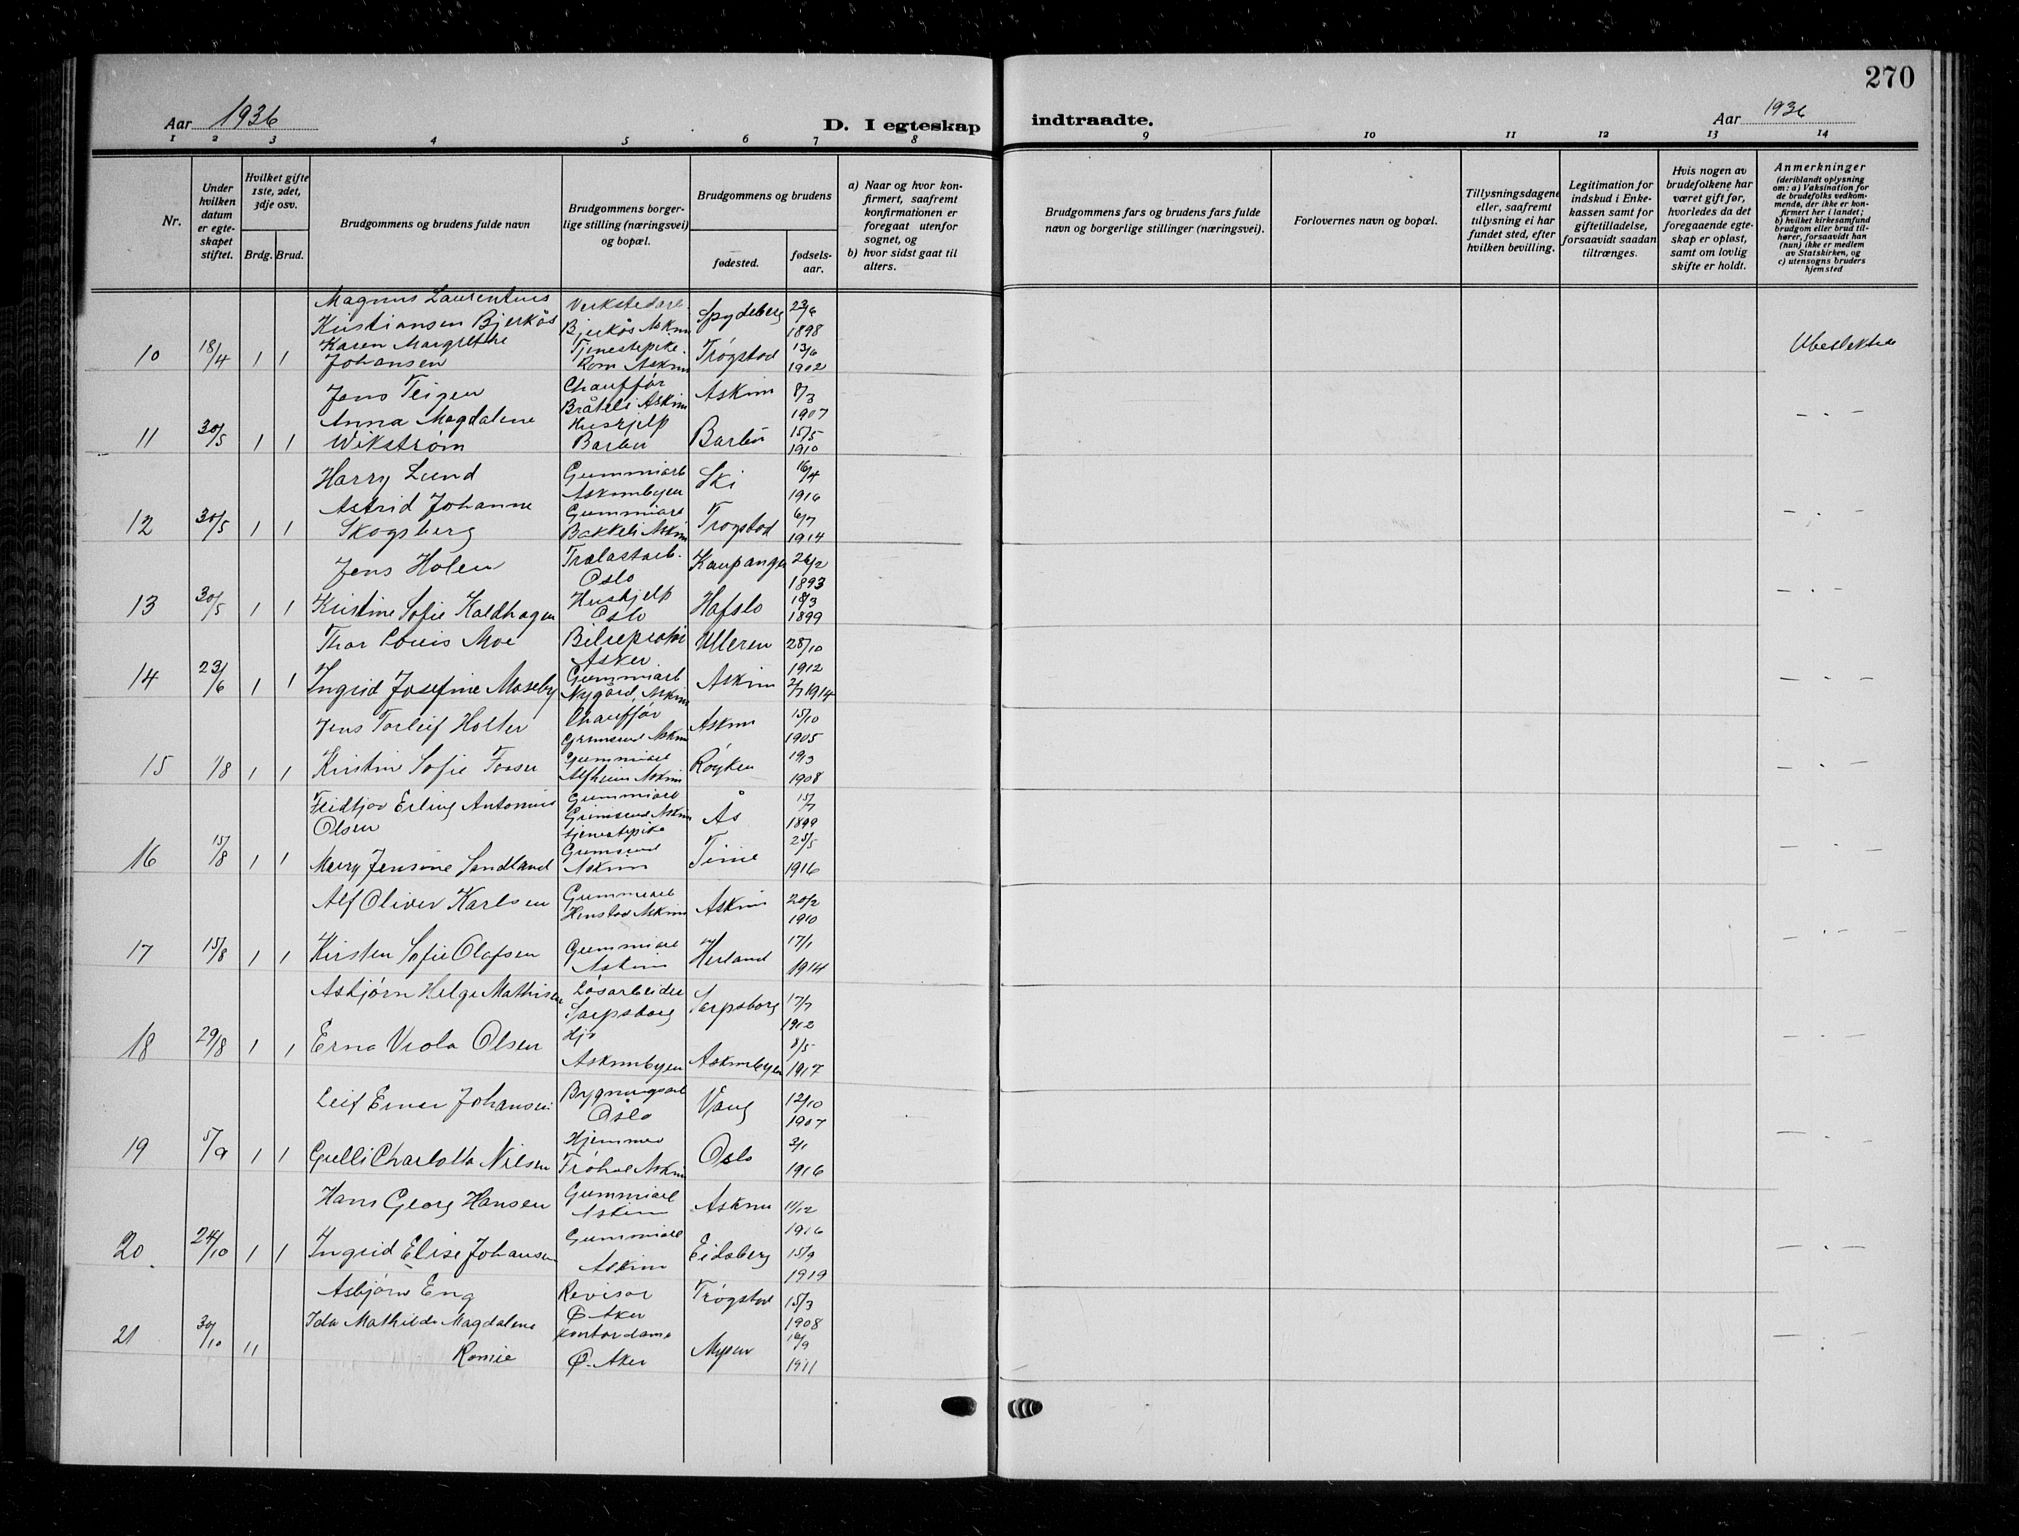 270
Aar 1936
D. I egteskap indtraadte.
Aar 1936
1 2 3 4 5 6 7 8 9 10 11 12 13 14
Nr.
Under hvilken datum er egteskapet stiftet.
Hvilket gifte 1ste, 2det, 3dje osv.
Brdg. Brud.
Brudgommens og brudens fulde navn
Brudgommens borgerlige stilling (næringsvei) og bopæl.
Brudgommens og brudens
fødested.
fødselsaar.
a) Naar og hvor konfirmert, saafremt konfirmationen er foregaat utenfor sognet, og
b) hvor sidst gaat til alters.
Brudgommens fars og brudens fars fulde navn og borgerlige stillinger (næringsvei).
Forlovernes navn og bopæl.
Tillysningsdagene eller, saafremt tillysning ei har fundet sted, efter hvilken bevilling.
Legitimation for indskud i Enkekassen samt for giftetilladelse, forsaavidt saadan tiltrænges.
Hvis nogen av brudefolkene har været gift før, hvorledes da det foregaaende egteskap er opløst, samt om lovlig skifte er holdt.
Anmerkninger (deriblandt oplysning om: a) Vaksination for de brudefolks vedkommende, der ikke er konfirmert her i landet; b) hvilket kirkesamfund brudgom eller brud tilhører, forsaavidt han (hun) ikke er medlem av Statskirken, og c) utensogns bruders hjemsted
Magnus Laurentius Kristiansen Bjerkås Verkstedarb. Bjerkås Askim Spydeberg 23/6 1898
10 18/4 1 1 Karen Margrethe Johansen Tjenestepike Rom Askim Trøgstad 13/6 1902 Ubeslektede
Jens Teigen Chauffør Bråteli Askim Askim 8/3 1907
11 30/5 1 1 Anna Magdalene Wikstrøm Hushjelp Barbu Barbu 15/5 1910 - . -
Harry Lund Gummiarb Askimbyen Ski 16/4 1916
12 30/5 1 1 Astrid Johanne Skogsberg Gummiarb Bakkeli Askim Trøgstad 6/7 1914 - . -
Jens Holen Trelastarb. Oslo Kaupanger 26/2 1893
13 30/5 1 1 Kristine Sofie Kaldhagen Hushjelp Oslo Hafslo 18/3 1899 - . -
Thor Louis Moe Bilreprtør Asker Ulleren 28/10 1912
14 23/6 1 1 Ingrid Josefine Moseby Gummiarb Nygård, Askim Askim 2/7 1914 - . -
Jens Torleif Holter Chauffør Grimsrud Askim Askim 15/10 1905
15 1/8 1 1 Kristine Sofie Fosser Gummiarb Alfheim Askim Røyken 19/3 1908 - . -
Fridtjov Erling Antonius Olsen Gummiarb Grimsrud Askim Ås 15/7 1899
16 15/8 1 1 Mary Jensine Sandland tjenestepike Grimsrud Askim Time 25/5 1916 - . -
Alf Oliver Karlsen Gummiarb Henstad Askim Askim 20/2 1910
17 15/8 1 1 Kirsten Sofie Olafsen Gummiarb Askim Herland 17/1 1914 - . -
Asbjørn Helge Mathisen Løsarbeider Sarpsborg Sarpsborg 17/7 1912
18 29/8 1 1 Erna Viola Olsen Hj. Askimbyen Askimbyen 8/5 1917 - . -
Leif Einar Johansen Bygningsarb Oslo Vang 12/10 1907
19 5/9 1 1 Gulli Charlotte Nilsen Hjemmev Trøhol Askim Oslo 3/1 1916 - . -
Hans Georg Hansen Gummiarb Askim Askim 11/12 1916
20 24/10 1 1 Ingrid Elise Johansen Gummiarb Askim Eidsberg 15/9 1919 - . -
Asbjørn Eng Revisor Ø Aker Trøgstad 15/3 1908
21 30/10 1 1 Ida Mathilde Magdalene Romie Kontordame Ø. Aker Mysen 16/9 1911 - . -